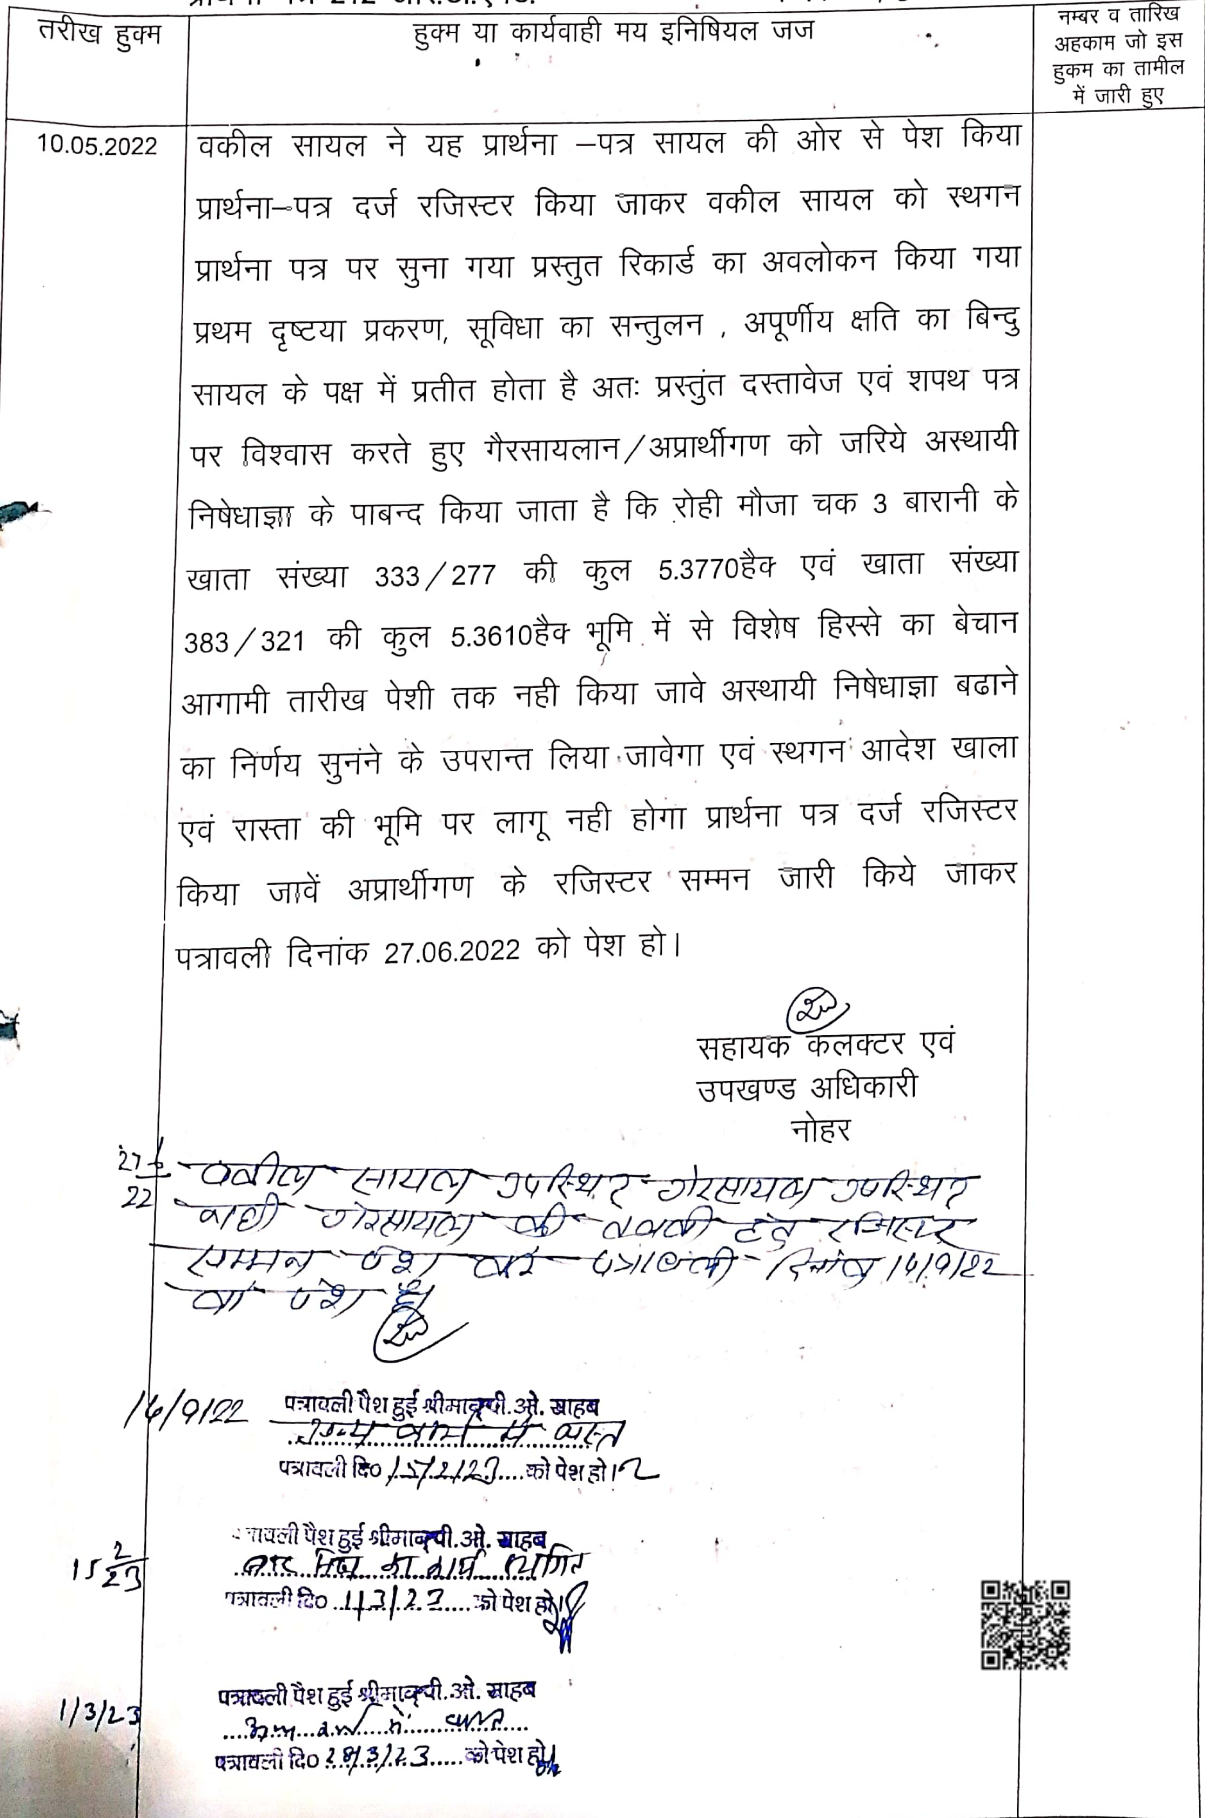 तरीख हुक्म
हुक्म या कार्यवाही मय इनिषियल जज
नम्बर व तारिख
अहकाम जो इस
हुकम का तामील
में जारी हुए
10.05.2022
वकील सायल ने यह प्रार्थना –पत्र सायल की ओर से पेश किया
प्रार्थना–पत्र दर्ज रजिस्टर किया जाकर वकील सायल को स्थगन
प्रार्थना पत्र पर सुना गया प्रस्तुत रिकार्ड का अवलोकन किया गया
प्रथम दृष्टया प्रकरण, सूविधा का सन्तुलन , अपूर्णीय क्षति का बिन्दु
सायल के पक्ष में प्रतीत होता है अतः प्रस्तुंत दस्तावेज एवं शपथ पत्र
पर विश्वास करते हुए गैरसायलान/अप्रार्थीगण को जरिये अस्थायी
निषेधाज्ञा के पाबन्द किया जाता है कि रोही मौजा चक 3 बारानी के
खाता संख्या 333/277 की कुल 5.3770हैक एवं खाता संख्या
383/321 की कुल 5.3610हैक भूमि में से विशेष हिस्से का बेचान
आगामी तारीख पेशी तक नही किया जावे अस्थायी निषेधाज्ञा बढाने
का निर्णय सुनंने के उपरान्त लिया जावेगा एवं स्थगन आदेश खाला
एवं रास्ता की भूमि पर लागू नही होगा प्रार्थना पत्र दर्ज रजिस्टर
किया जावें अप्रार्थीगण के रजिस्टर सम्मन जारी किये जाकर
पत्रावली दिनांक 27.06.2022 को पेश हो।
सहायक कलक्टर एवं
उपखण्ड अधिकारी
नोहर
27/6
22
वकील सायल उपस्थित गेरसायल उपस्थित
नही गेरसायल की तलबी हेतु रजिस्टर
सम्मन पेश करे पत्रावली दिनांक 14/9/22
को पेश हो
14/9/22
पत्रावली पैश हुई श्रीमान् पी.ओ. साहब
अन्य कार्य में व्यस्त
पत्रावली दि० 15/2/23 को पेश हो।
15 2/23
पत्रावली पैश हुई श्रीमान् पी.ओ. साहब
का कार्य स्थगित
पत्रावली दि० 1/3/23 को पेश हो।
1/3/23
पत्रावली पैश हुई श्रीमान् पी.ओ. साहब
अन्य कार्य में व्यस्त
पत्रावली दि० 28/3/23 को पेश हो